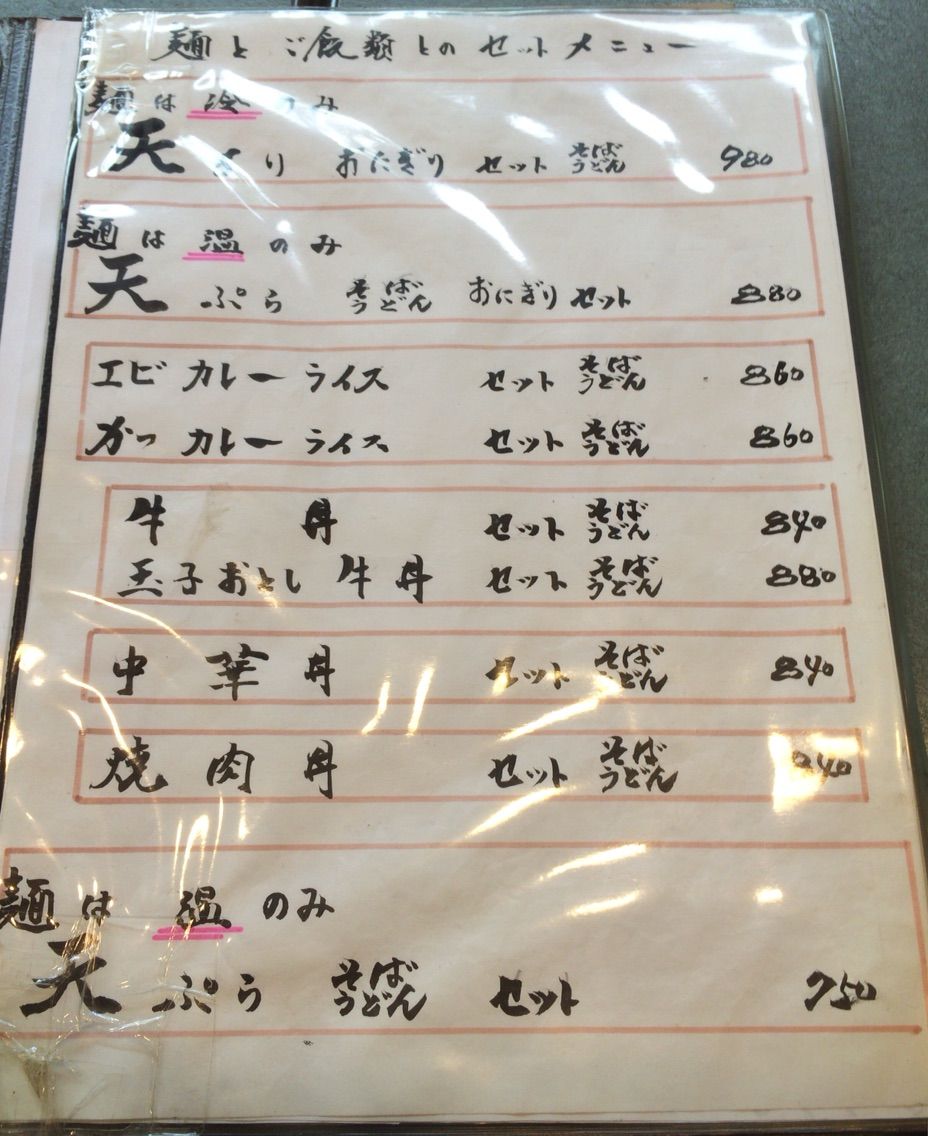 麺とご飯類とのセットメニュー
麺は冷のみ
天もり おにぎり セット そば うどん 980
麺は温のみ
天ぷら そば うどん おにぎり セット 880
エビカレーライス セット そば うどん 860
かつカレーライス セット そば うどん 860
牛丼 セット そば うどん 840
玉子おとし牛丼 セット そば うどん 880
中華丼 セット そば うどん 840
焼肉丼 セット そば うどん
麺は温のみ
天ぷら そば うどん セット 750